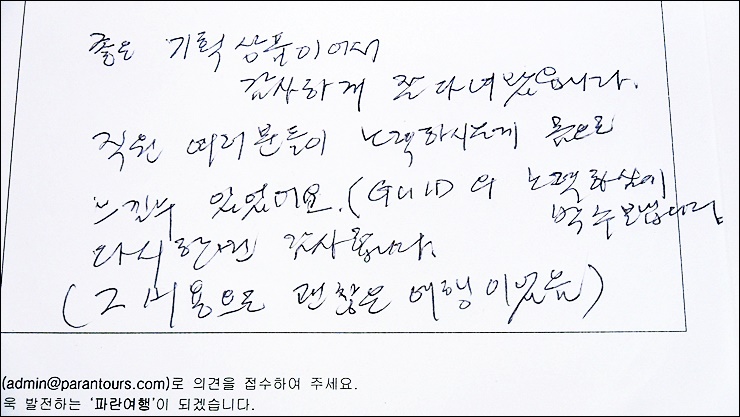 좋은 기획상품이어서
감사하게 잘 다녀왔습니다.
직원 여러분들이 노력하시는게 몸으로
느낄수 있었어요. (GUID의 노력하심에
박수보냅니다)
다시한번 감사합니다.
(그 비용으로 괜찮은 여행이었음)
(admin@parantours.com)로 의견을 접수하여 주세요.
욱 발전하는 '파란여행'이 되겠습니다.